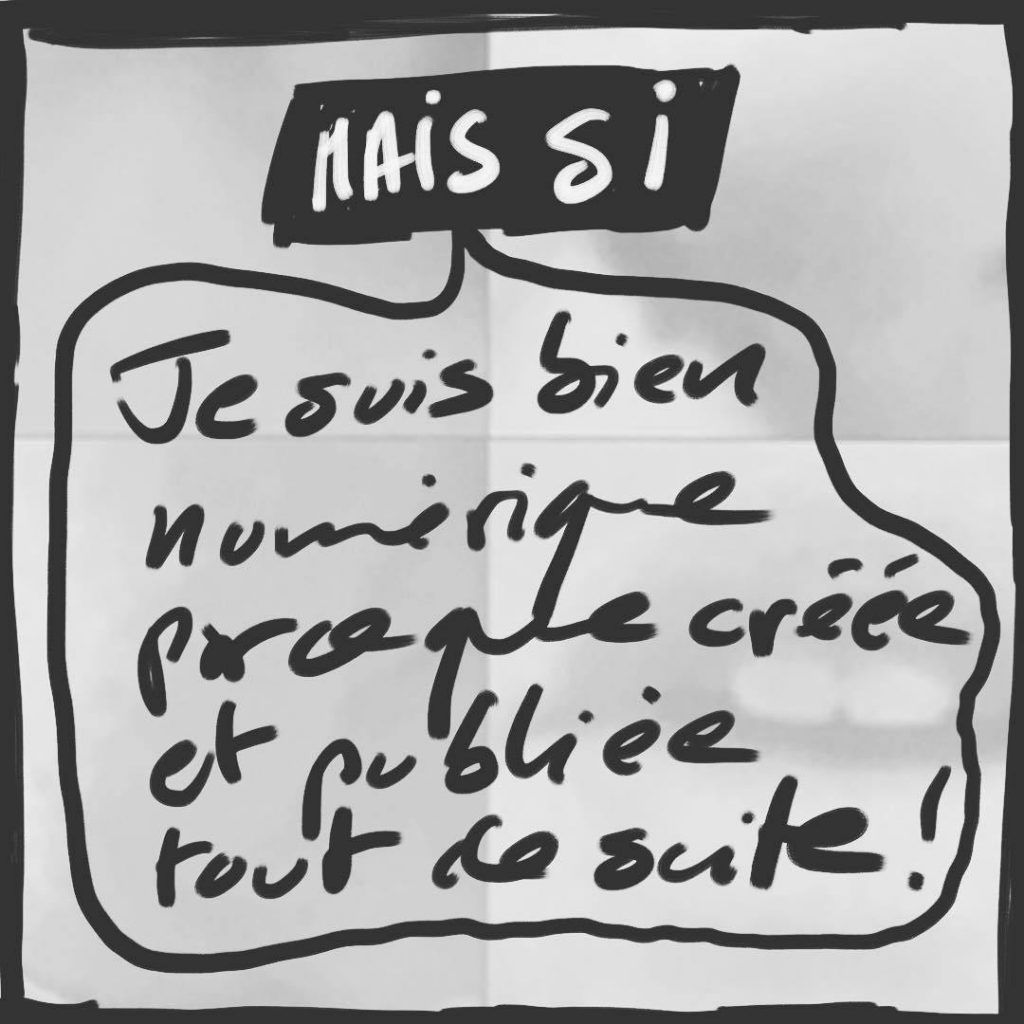 MAIS SI
Je suis bien
numérique
parce que créée
et publiée
tout de suite !